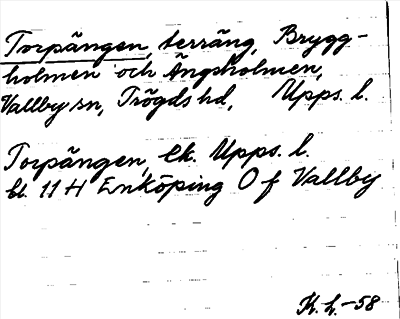 Torpängen, terräng, Brygg-
holmen och Ängsholmen,
Vallby sn, Trögds hd, Upps. l.
Torpängen, Ek. Upps. l.
bl. 11 H Enköping O f Vallby
K. L. -58